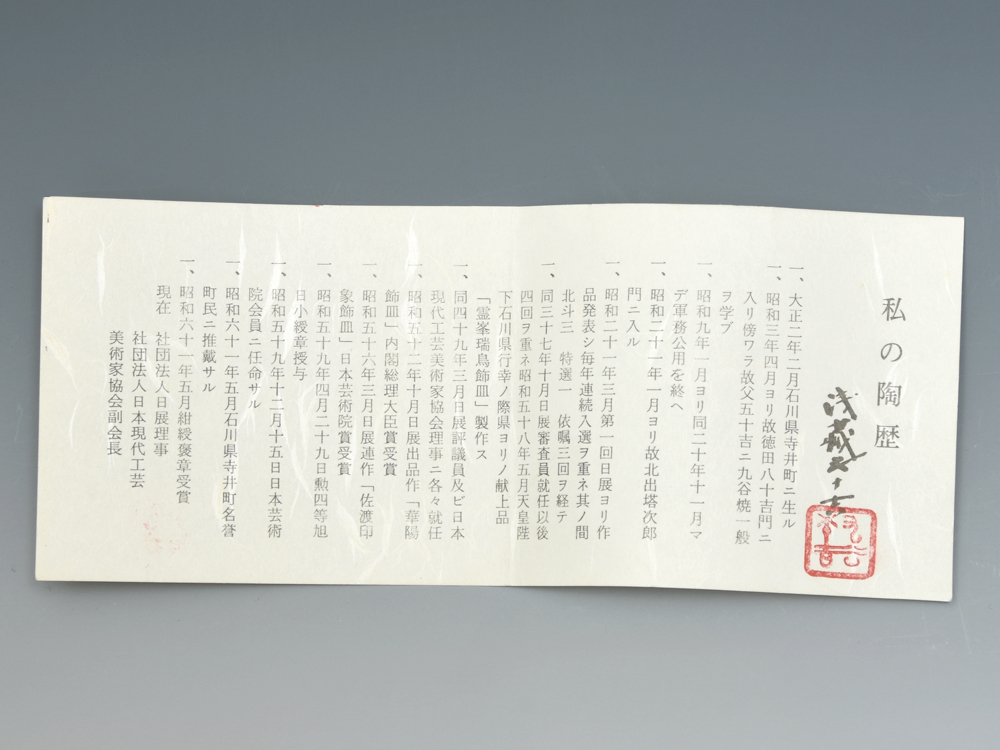 私の陶歴
浅蔵五十吉
一、大正二年二月石川県寺井町ニ生ル
一、昭和三年四月ヨリ故徳田八十吉門ニ
入リ傍ワラ故父五十吉ニ九谷焼一般
ヲ学ブ
一、昭和九年一月ヨリ同二十年十一月マ
デ軍務公用を終へ
一、昭和二十一年一月ヨリ故北出塔次郎
門ニ入ル
一、昭和二十一年三月第一回日展ヨリ作
品発表シ毎年連続入選ヲ重ネ其ノ間
北斗三　特選一　依嘱三回ヲ経テ
一、同三十七年十月日展審査員就任以後
四回ヲ重ネ昭和五十八年五月天皇陛
下石川県行幸ノ際県ヨリノ献上品
「霊峯瑞鳥飾皿」製作ス
一、同四十九年三月日展評議員及ビ日本
現代工芸美術家協会理事ニ各々就任
一、昭和五十二年十月日展出品作「華陽
飾皿」内閣総理大臣賞受賞
一、昭和五十六年三月日展連作「佐渡印
象飾皿」日本芸術院賞受賞
一、昭和五十九年四月二十九日勲四等旭
日小綬章授与
一、昭和五十九年十二月十五日日本芸術
院会員ニ任命サル
一、昭和六十一年五月石川県寺井町名誉
町民ニ推戴サル
一、昭和六十一年五月紺綬褒章受賞
現在　社団法人日展理事
社団法人日本現代工芸
美術家協会副会長